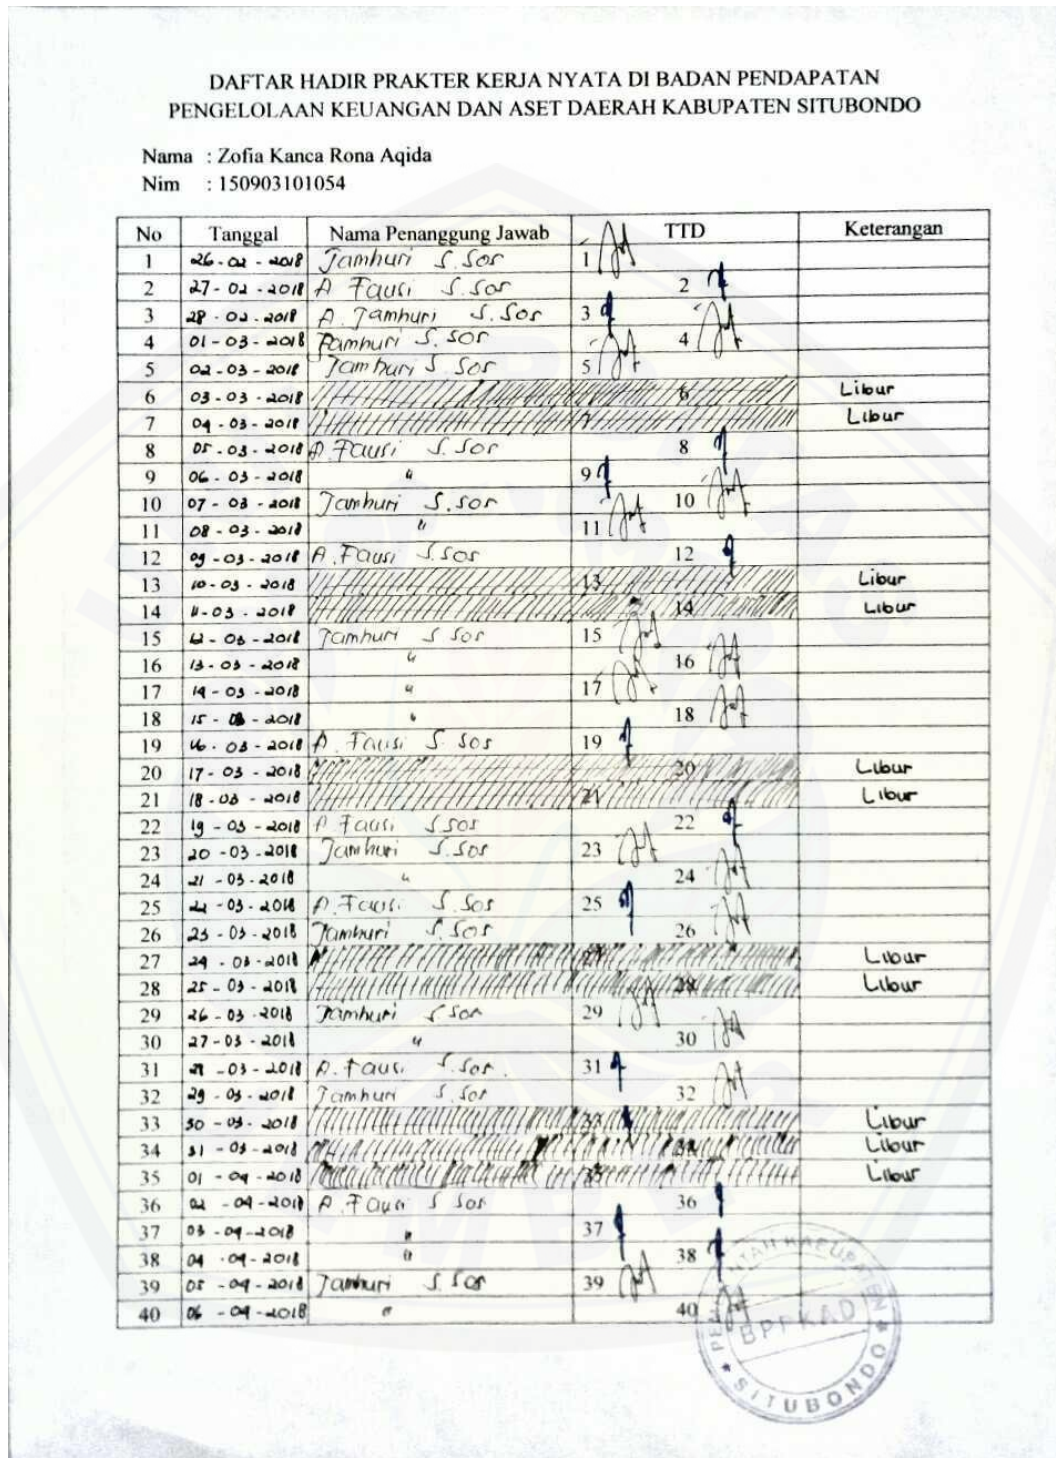 DAFTAR HADIR PRAKTER KERJA NYATA DI BADAN PENDAPATAN
PENGELOLAAN KEUANGAN DAN ASET DAERAH KABUPATEN SITUBONDO
Nama : Zofia Kanca Rona Aqida
Nim : 150903101054
No Tanggal Nama Penanggung Jawab TTD Keterangan
1 26-02-2018 Jamhuri S.Sos 1
2 27-02-2018 A Fausi S.Sos 2
3 28-02-2018 A. Jamhuri S.Sos 3
4 01-03-2018 Jamhuri S.Sos 4
5 02-03-2018 Jamhuri S.Sos 5
6 03-03-2018 6 Libur
7 04-03-2018 7 Libur
8 05-03-2018 A.Fausi S.Sos 8
9 06-03-2018 " 9
10 07-03-2018 Jamhuri S.Sos 10
11 08-03-2018 " 11
12 09-03-2018 A.Fausi S.Sos 12
13 10-03-2018 13 Libur
14 11-03-2018 14 Libur
15 12-03-2018 Jamhuri S Sos 15
16 13-03-2018 " 16
17 14-03-2018 " 17
18 15-03-2018 " 18
19 16-03-2018 A. Fausi S.Sos 19
20 17-03-2018 20 Libur
21 18-03-2018 21 Libur
22 19-03-2018 A Fausi S Sos 22
23 20-03-2018 Jamhuri S.Sos 23
24 21-03-2018 " 24
25 22-03-2018 A.Fausi S.Sos 25
26 23-03-2018 Jamhuri S.Sos 26
27 24-03-2018 27 Libur
28 25-03-2018 28 Libur
29 26-03-2018 Jamhuri S Sos 29
30 27-03-2018 " 30
31 28-03-2018 A.Fausi S.Sos. 31
32 29-03-2018 Jamhuri S.Sos 32
33 30-03-2018 33 Libur
34 31-03-2018 34 Libur
35 01-04-2018 35 Libur
36 02-04-2018 A.Fausi S Sos 36
37 03-04-2018 " 37
38 04-04-2018 " 38
39 05-04-2018 Jamhuri S.Sos 39
40 06-04-2018 " 40
BPPKAD
SITUBONDO